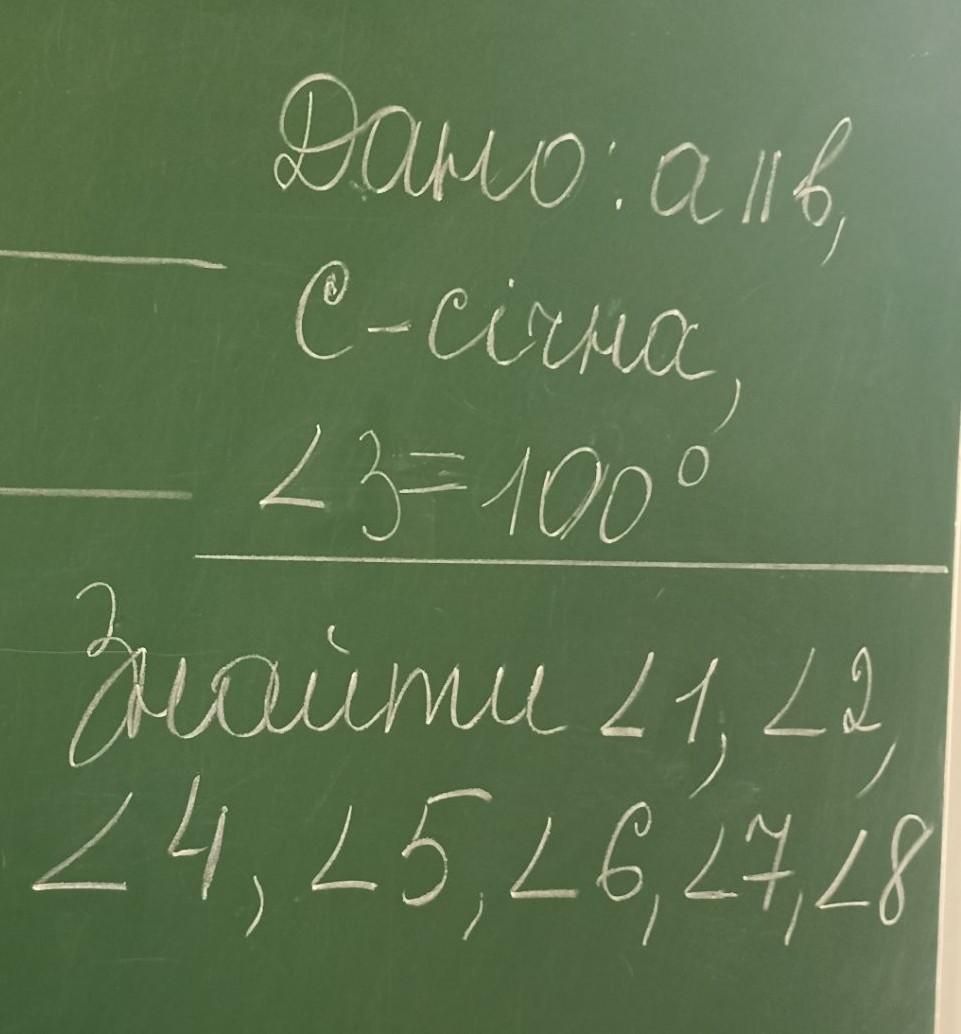 Дано: а || в,
С-січна,
∠3=100°
Знайти ∠1, ∠2,
∠4, ∠5, ∠6, ∠7, ∠8